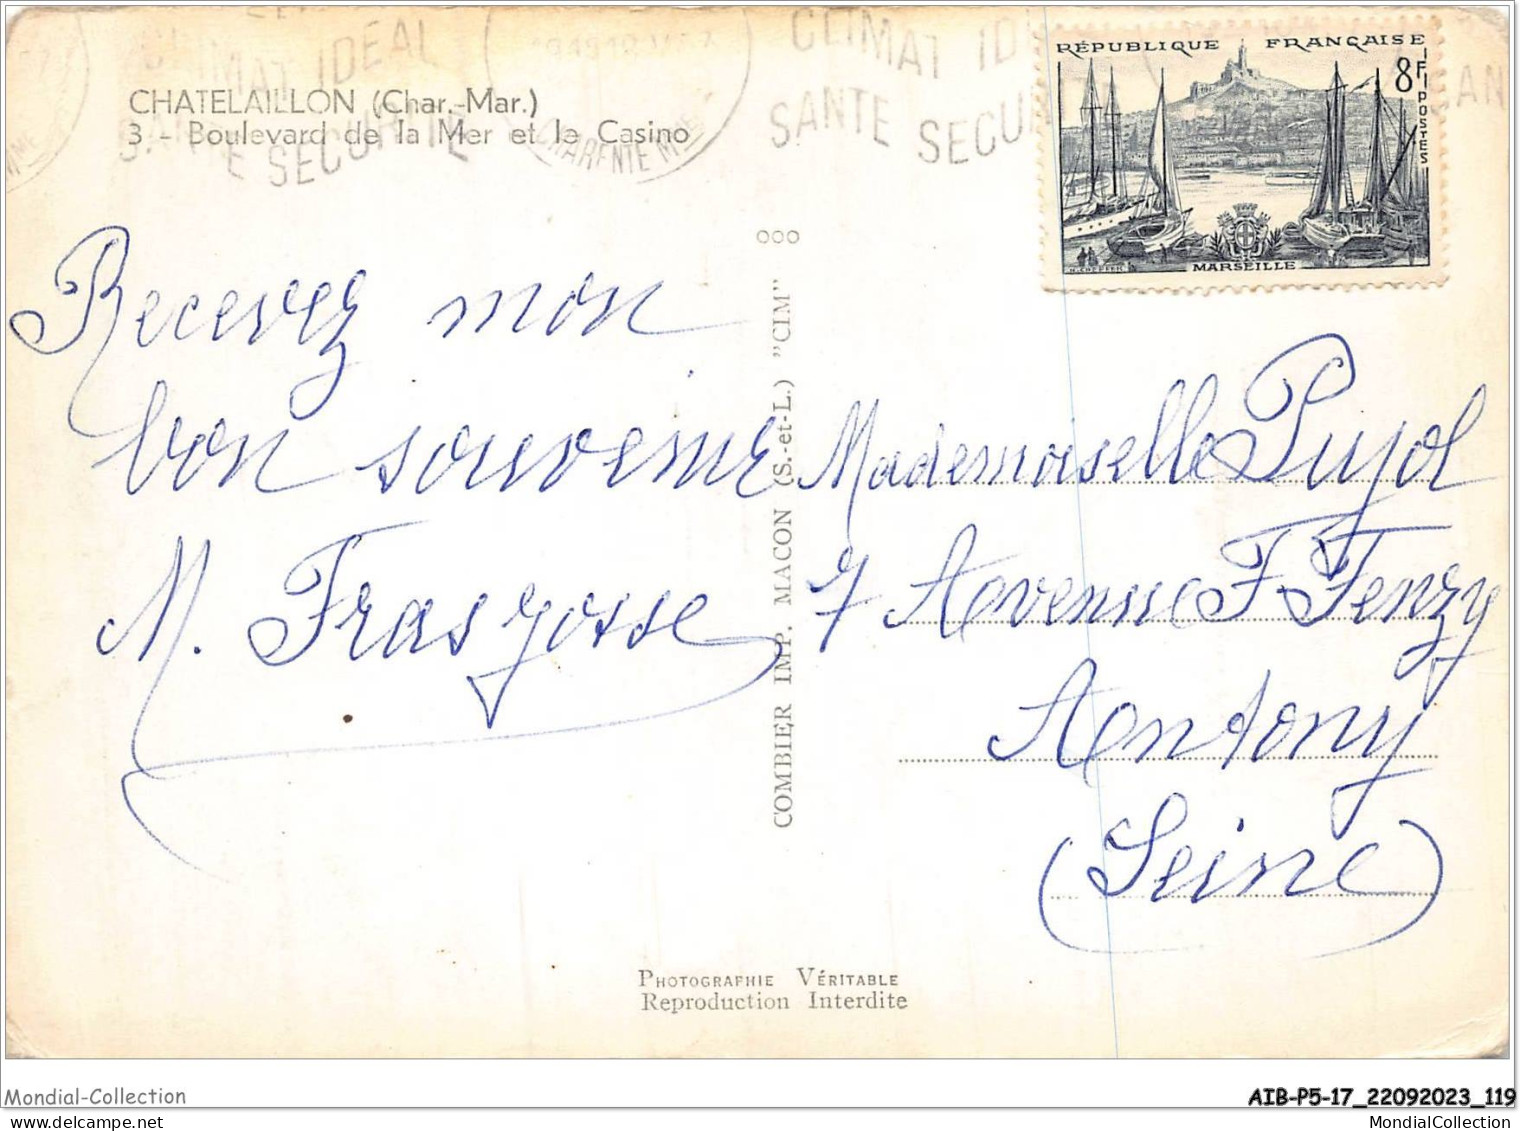 CLIMAT IDEAL
SANTE SECURITE
CHARENTE MME
CLIMAT
SANTE
RÉPUBLIQUE FRANÇAISE
8F
POSTES
MARSEILLE
CHATELAILLON (Char.-Mar.)
3 - Boulevard de la Mer et le Casino
Recevez mon
bon souvenir
M.
COMBIER IMP. MACON (S.-et-L.) "CIM"
Mademoiselle Pujol
7 Avenue F Fenzy
Antony
(Seine)
PHOTOGRAPHIE VÉRITABLE
Reproduction Interdite
Mondial-Collection
AIB-P5-17_22092023_119
MondialCollection